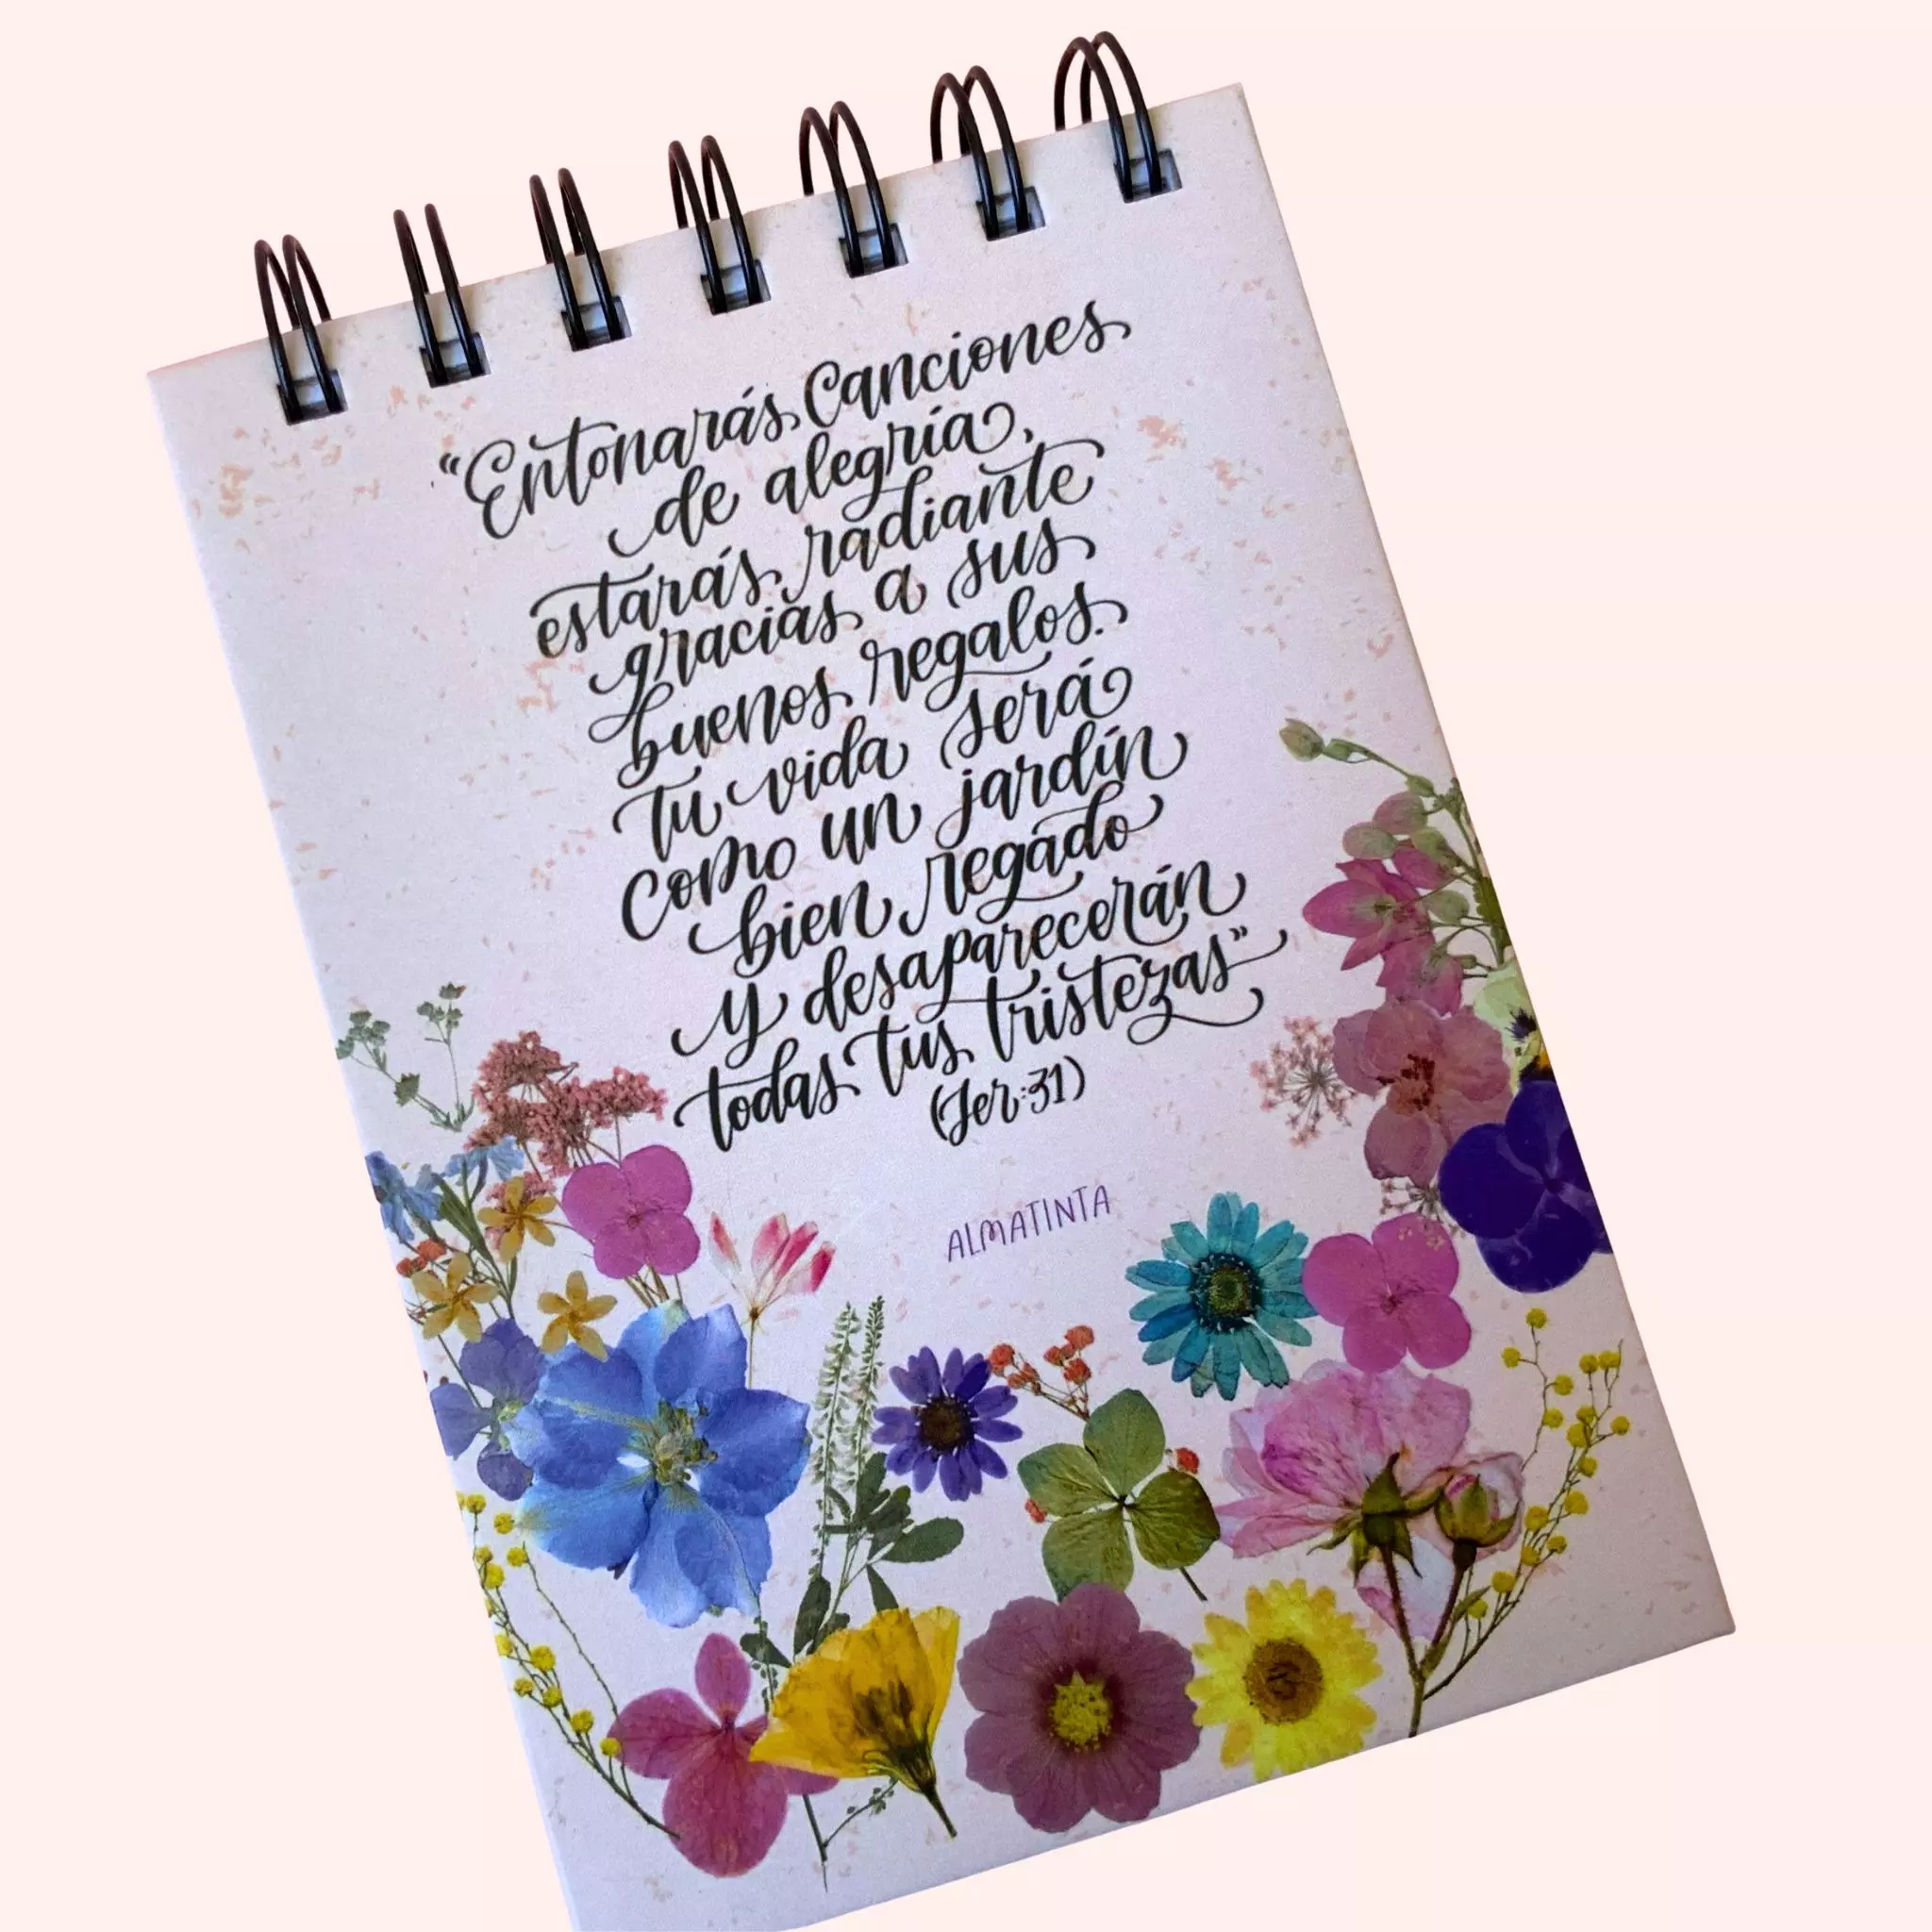 “Entonarás Canciones
de alegría,
estarás radiante
gracias a sus
buenos regalos.
tu vida será
como un jardín
bien regado
y desaparecerán
todas tus tristezas”
(Jer:31)
ALMATINTA